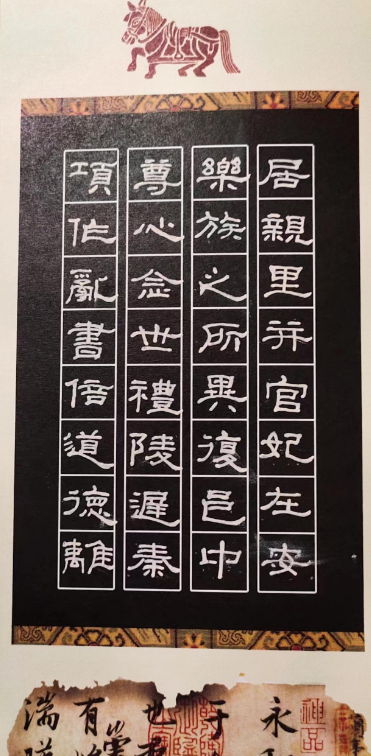 居親里并官妃在安
樂族之所異復邑中
尊心念世禮陵遲秦
項作亂書倍道德離
永
于
也
有
湍